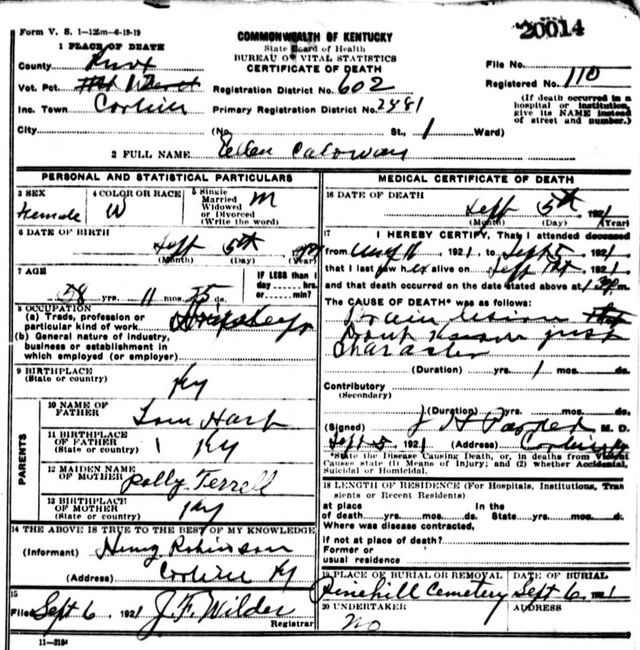 Form V. S. 1-125m-6-19-19
20014
COMMONWEALTH OF KENTUCKY
State Board of Health
BUREAU OF VITAL STATISTICS
CERTIFICATE OF DEATH
1 PLACE OF DEATH
County
Vot. Pct.
Inc. Town Corbin
City (No. St., 1 Ward)
Registration District No. 602
Primary Registration District No. 2481
File No.
Registered No. 110
(If death occurred in a
hospital or institution,
give its NAME instead
of street and number.)
2 FULL NAME Ellen Caloway
PERSONAL AND STATISTICAL PARTICULARS
3 SEX
Female
4 COLOR OR RACE
W
5 Single
Married
Widowed
or Divorced
(Write the word)
M
6 DATE OF BIRTH
Sept 5th
(Month) (Day) (Year)
7 AGE
58 yrs. 11 mos. 25 ds.
IF LESS than 1
day hrs.
or min.?
8 OCCUPATION
(a) Trade, profession or
particular kind of work
(b) General nature of industry,
business or establishment in
which employed (or employer)
9 BIRTHPLACE
(State or country)
Ky
PARENTS
10 NAME OF
FATHER
Tom Hart
11 BIRTHPLACE
OF FATHER
(State or country)
Ky
12 MAIDEN NAME
OF MOTHER
Polly Terrell
13 BIRTHPLACE
OF MOTHER
(State or country)
Ky
14 THE ABOVE IS TRUE TO THE BEST OF MY KNOWLEDGE
(Informant) Henry Robinson
(Address) Corbin Ky
15
Filed Sept 6, 1921 J. F. Wilder
Registrar
11-3184
MEDICAL CERTIFICATE OF DEATH
16 DATE OF DEATH
Sept 5th 1921
(Month) (Day) (Year)
17 I HEREBY CERTIFY, That I attended deceased
from Aug 11 1921, to Sept 5, 1921
that I last saw her alive on Sept 1921
and that death occurred on the date stated above at m.
The CAUSE OF DEATH* was as follows:
Brain lesion
Dont Know just
Character
(Duration) yrs. 1 mos. ds.
Contributory
(Secondary)
(Duration) yrs. mos. ds.
(Signed) J H M. D.
Sept 5, 1921 (Address) Corbin Ky
*State the Disease Causing Death, or, in deaths from Violent
Causes state (1) Means of Injury; and (2) whether Accidental,
Suicidal or Homicidal.
18 LENGTH OF RESIDENCE (For Hospitals, Institutions, Tran
sients or Recent Residents)
at place In the
of death yrs. mos. ds. State yrs. mos. ds.
Where was disease contracted,
if not at place of death?
Former or
usual residence
19 PLACE OF BURIAL OR REMOVAL
Pinehill Cemetery
DATE OF BURIAL
Sept 6. 1921
20 UNDERTAKER
No
ADDRESS